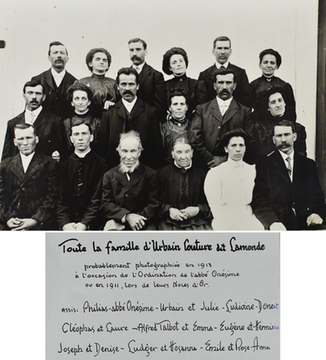 Toute la famille d'Urbain Couture dit Lamonde
probablement photographiée en 1913
à l'occasion de l'Ordination de l'abbé Onésime
ou en 1911, lors de leurs Noces d'Or.
assis: Philias-abbé Onésime-Urbain et Julie-Ludivine-Donat
Cléophas et Laure-Alfred Talbot et Emma-Eugène et
Joseph et Denise-Ludger et Hosanna-Emile et Rose-Anna